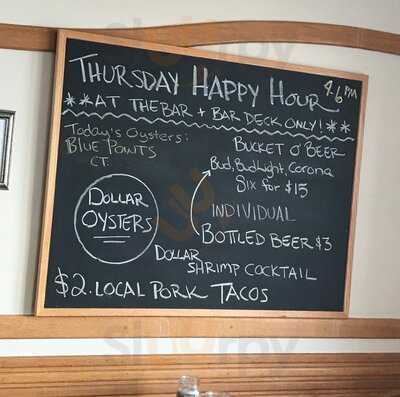 Thursday Happy Hour 4-6 pm
**At the Bar + Bar Deck Only!**
Today's Oysters:
Blue Points
CT.
Bucket O' Beer
Bud, Budlight, Corona
Six for $15
Dollar
Oysters
Individual
Bottled Beer $3
Dollar
Shrimp Cocktail
$2. Local Pork Tacos